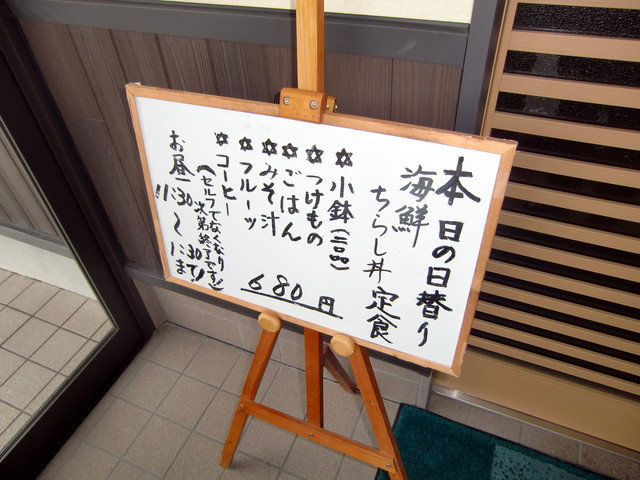 本日の日替り
海鮮ちらし丼定食
✡小鉢(二コ)
✡つけもの
✡ごはん
✡みそ汁
✡フルーツ
✡コーヒー
(セルフでなくなり
次第終了です!)
お昼11:30～1:30まで!
680円